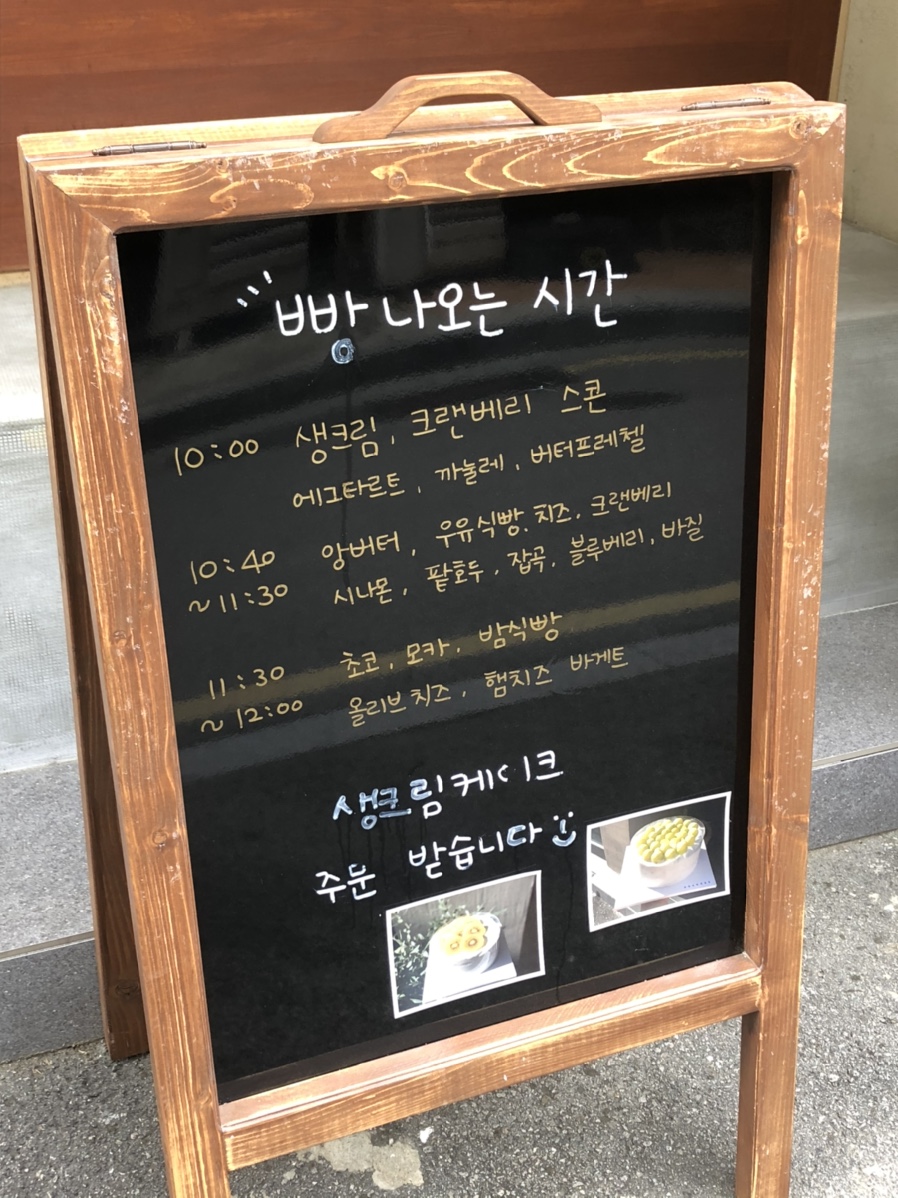 빵 나오는 시간
10:00 생크림, 크랜베리 스콘
에그타르트, 까눌레, 버터프레첼
10:40 앙버터, 우유식빵, 치즈, 크랜베리
~11:30 시나몬, 팥호두, 잡곡, 블루베리, 바질
11:30 초코, 모카, 밤식빵
~12:00 올리브치즈, 햄치즈 바게트
생크림케이크
주문 받습니다